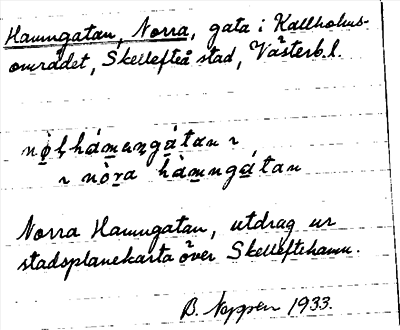 Hamngatan, Norra, gata i Kallholms-
området, Skellefteå stad, Västerb.l.
nòḷhámеngátan ~
~ nòra hàmngátan
Norra Hamngatan, utdrag ur
stadsplanekarta över Skelleftehamn.
B. 1933.